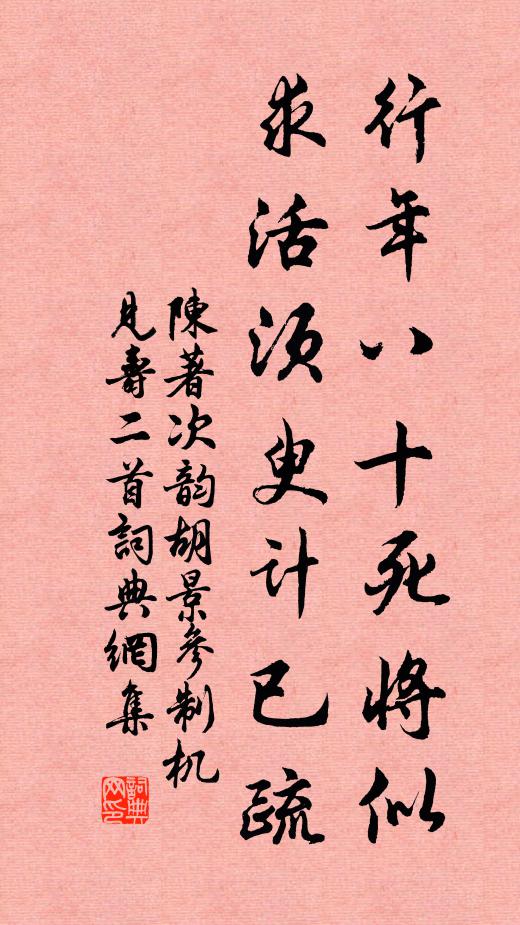 行年八十死將似
求活須臾計已疏
陳著次韵胡景參制机
見壽二首詞典網集
詞典
网印